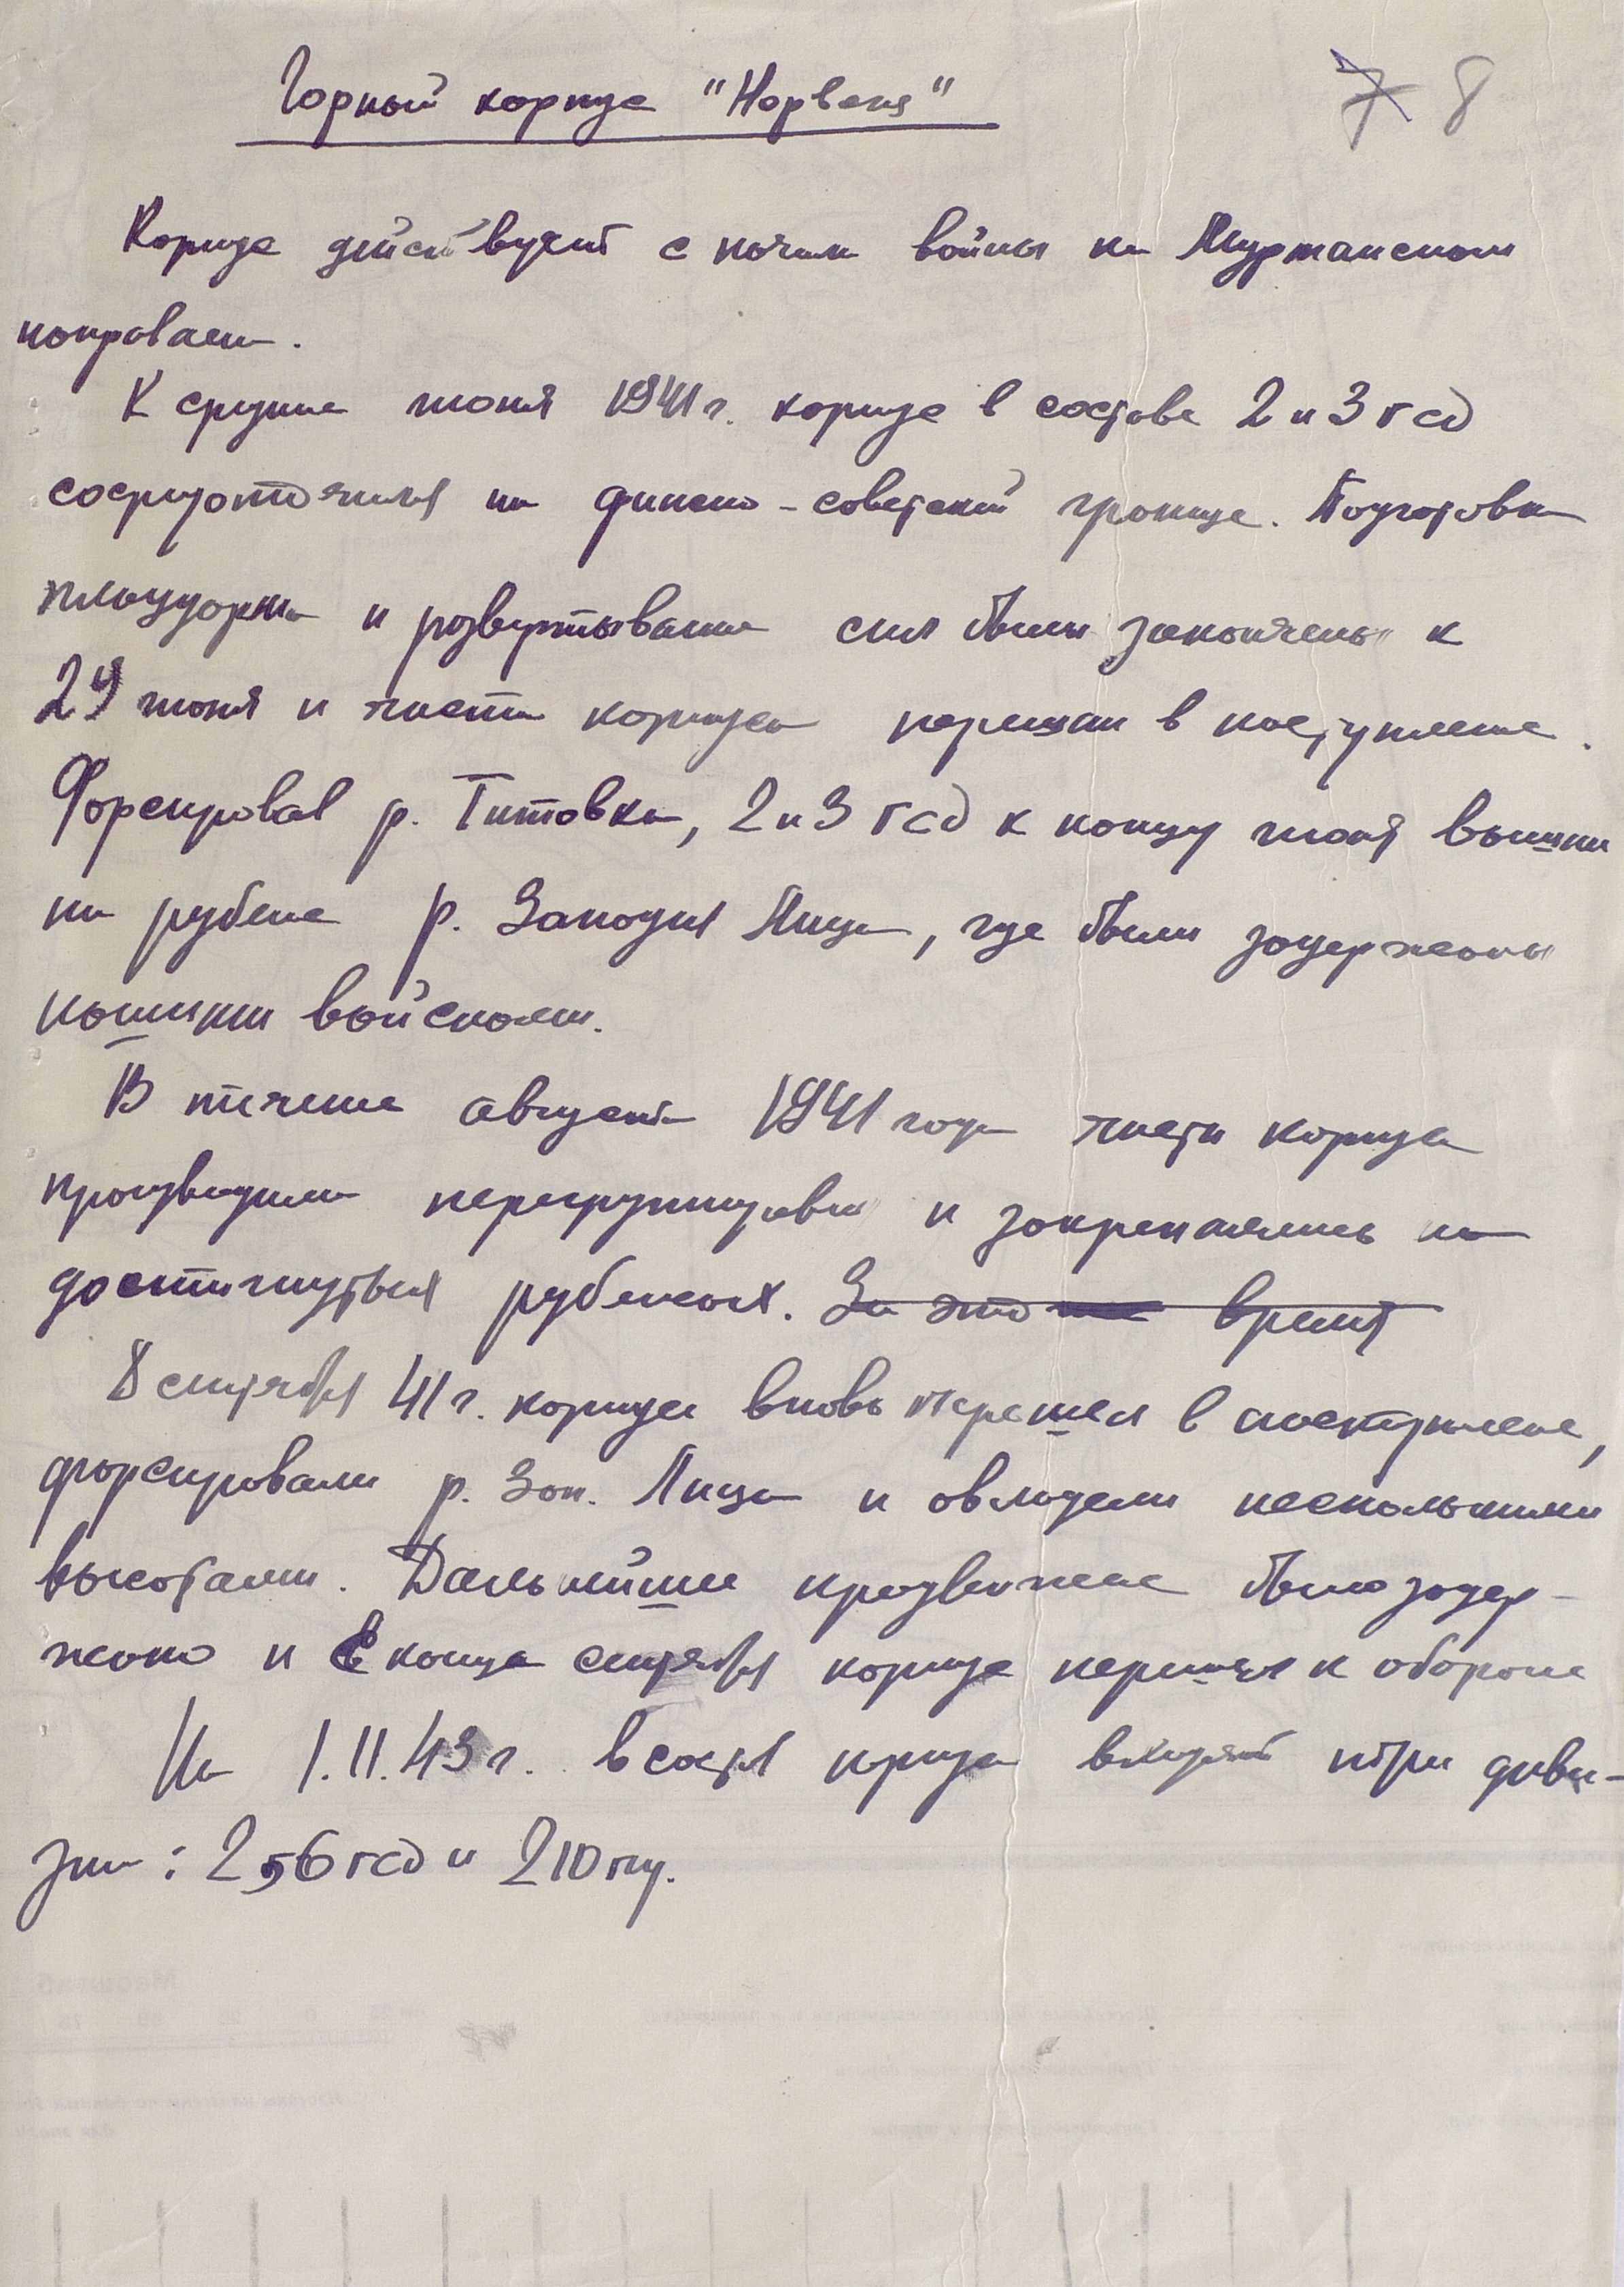 Горный корпус "Норвегия"
7 8
Корпус действует с начала войны на Мурманском
направлении.
К средине июня 1941 г. корпус в составе 2 и 3 гсд
сосредоточился на финско-советской границе. Подготовка
плацдарма и развертывание сил были закончены к
29 июня и части корпуса перешли в наступление.
Форсировав р. Титовка, 2 и 3 гсд к концу июня вышли
на рубеже р. Западная Лица, где были задержаны
нашими войсками.
В течение августа 1941 года части корпуса
производили перегруппировки и закреплялись на
достигнутых рубежах. За это время
8 сентября 41 г. корпус вновь перешел в наступление,
форсировали р. Зап. Лица и овладели несколькими
высотами. Дальнейшее продвижение было задер-
жано и с конца сентября корпус перешел к обороне
На 1.11.43 г. в состав корпуса входят три диви-
зии: 2, 6 гсд и 210 пд.